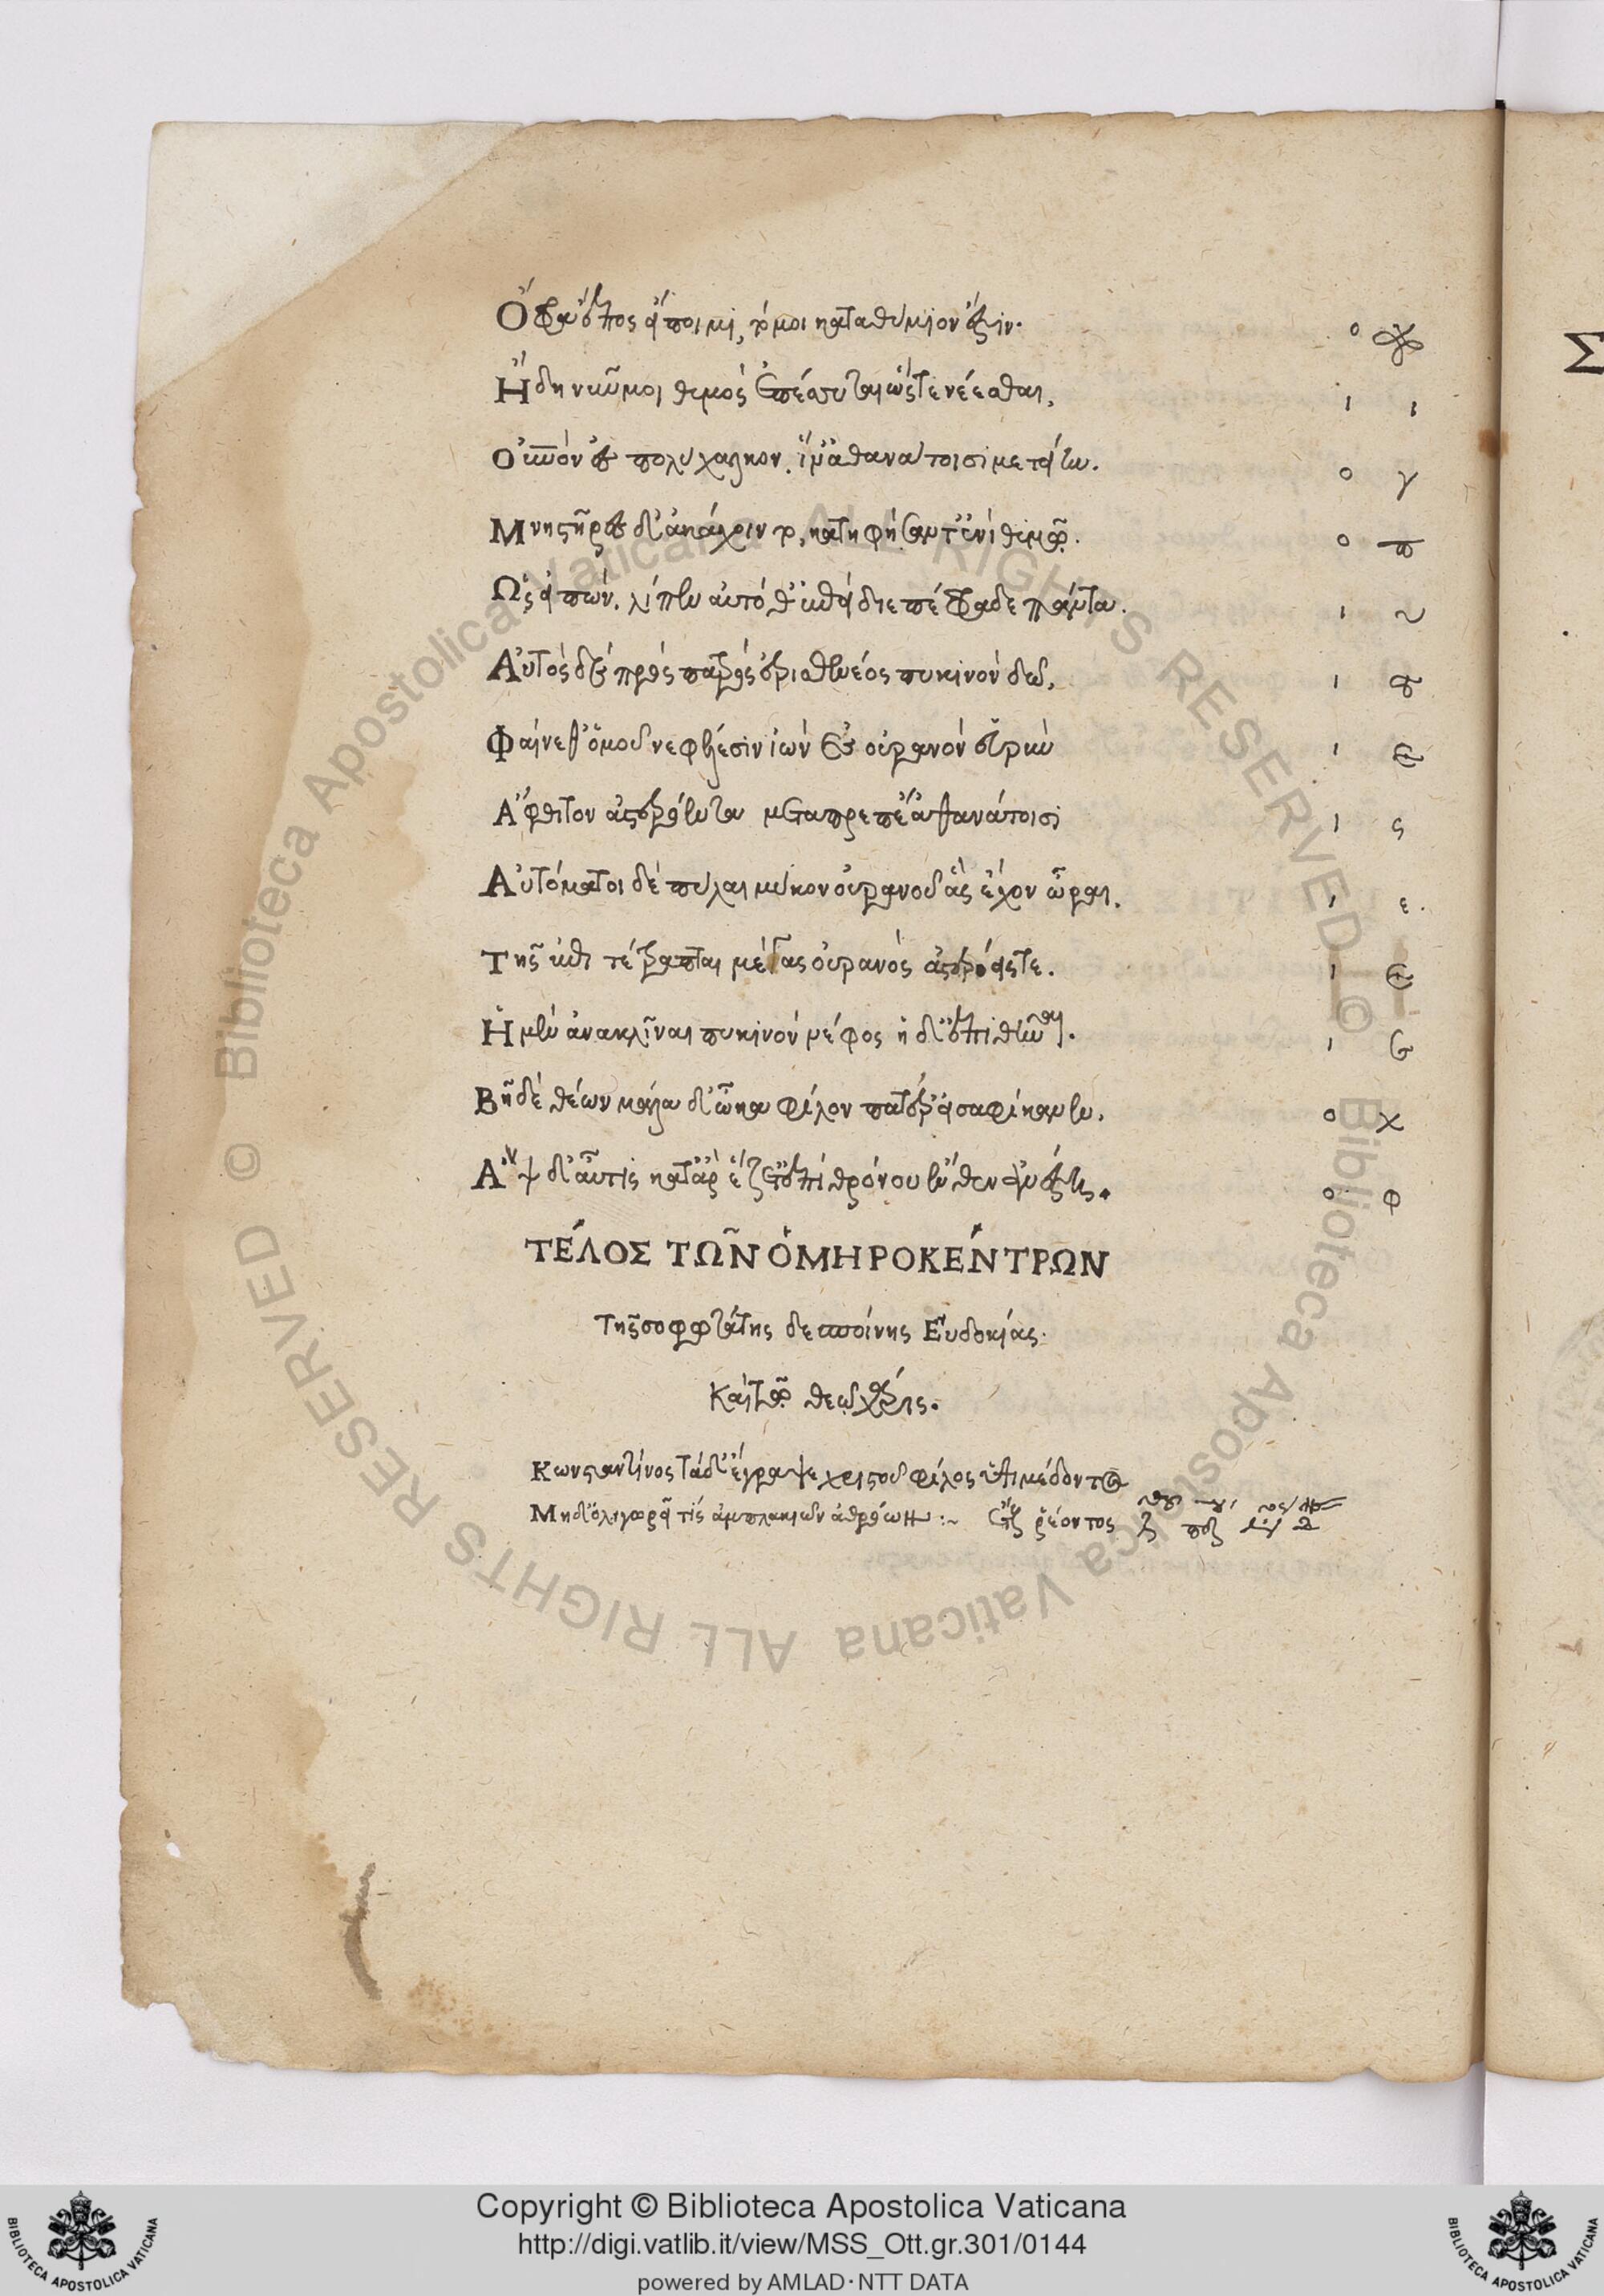 Ὄφρα ἔπος εἴποιμι, τό μοι καταθύμιον ἐστιν. ο
Ἤδη νῦν μοι θυμὸς ἐπέσσυται ὥστε νέεσθαι, ι ι
Οἶκον ἐς πολύχαλκον. ἵν' ἀθανάτοισι μετείην. ο γ
Μνηστῆρας δ' ἀκάχιζον, κατηφήσαντ' ἐνὶ θυμῷ. ο π
Ὣς εἰπὼν. λίπεν αὐτόθ' ἐπεὶ διεπέφραδε πάντα. ι υ
Αὐτὸς δὲ πρὸς πατρὸς ἐρισθενέος πυκινὸν δῶ, ι
Φαίνεθ' ὁμοῦ νεφέεσσιν ἰὼν εἰς οὐρανὸν εὐρὺν ι
Ἄφθιτον ἀστερόεντα μεταπρεπέ' ἀθανάτοισι ι ς
Αὐτόματοι δὲ πύλαι μύκον οὐρανοῦ ἃς ἔχον ὧραι. ι ε.
Τῆς ἐπιτέτραπται μέγας οὐρανὸς ἀστερόεις τε. ι
Ἠμὲν ἀνακλῖναι πυκινὸν νέφος ἠδ' ἐπιθεῖναι. ι
Βῆ δὲ θέων μάλα δ' ὦκα φίλον πατέρ' εἰσαφίκανεν. ο χ
Ἂψ δ' αὖτις κατ' ἄρ' ἕζετ' ἐπὶ θρόνου ἔνθεν ἀνέστη. ο φ
ΤΈΛΟΣ ΤΩ͂Ν ὉΜΗΡΟΚΈΝΤΡΩΝ
Τῆς σοφωτάτης δεσποίνης Εὐδοκίας.
Καὶ τῷ θεῷ χάρις.
Κωνσταντῖνος τάδ' ἔγραψε χριστοῦ φίλος
Μηδ' ὀλίγωρα τίς ἀμπλακιῶν
Σ
Copyright © Biblioteca Apostolica Vaticana
http://digi.vatlib.it/view/MSS_Ott.gr.301/0144
powered by AMLAD·NTT DATA